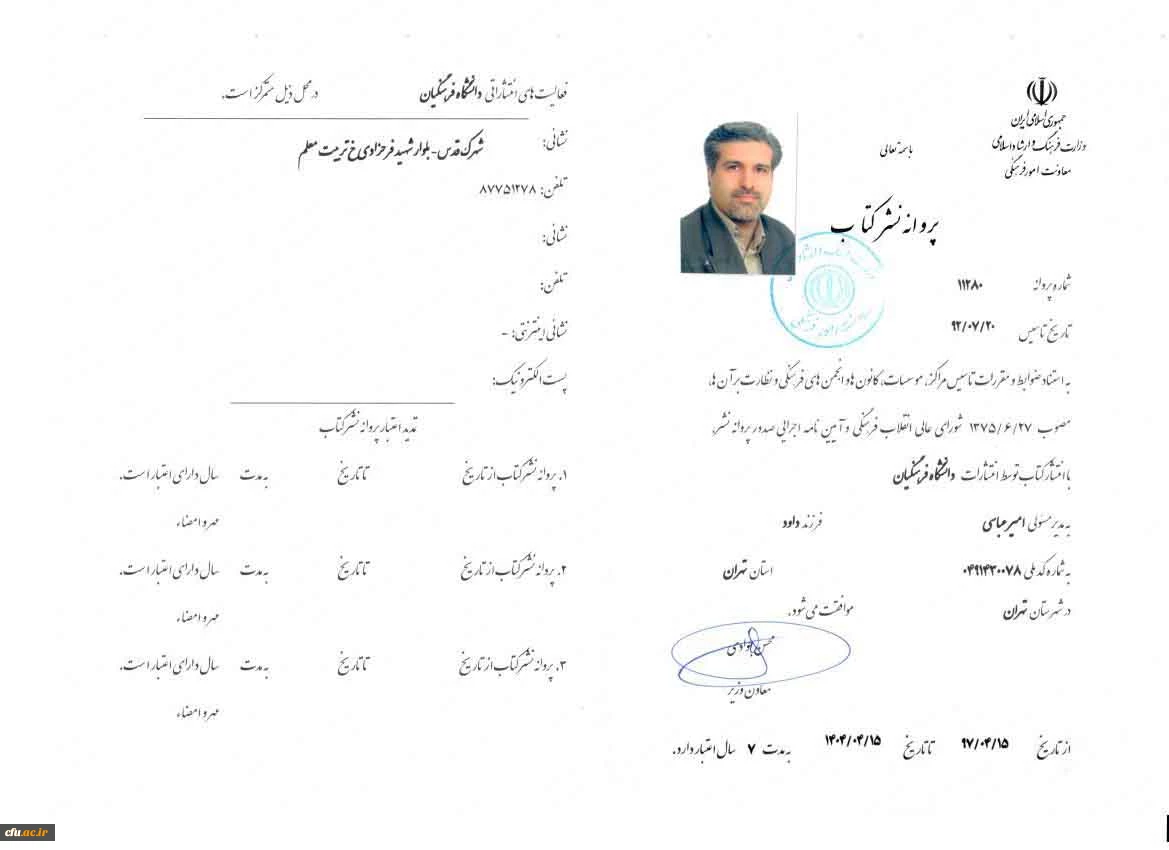 جمهوری اسلامی ایران
وزارت فرهنگ و ارشاد اسلامی
معاونت امور فرهنگی
باسمه تعالی
پروانه نشر کتاب
شماره پروانه ۱۱۲۸۰
تاریخ تاسیس ۹۲/۰۷/۲۰
به استناد ضوابط و مقررات تاسیس مراکز، موسسات، کانون ها و انجمن های فرهنگی و نظارت بر آن ها،
مصوب ۱۳۷۵/۶/۲۷ شورای عالی انقلاب فرهنگی و آیین نامه اجرایی صدور پروانه نشر،
با انتشار کتاب توسط انتشارات دانشگاه فرهنگیان
به مدیر مسئولی امیر عباسی فرزند داود
به شماره کد ملی ۰۴۹۱۴۳۰۰۷۸ استان تهران
در شهرستان تهران موافقت می شود.
محسن جوادی
معاون وزیر
از تاریخ ۹۷/۰۴/۱۵ تا تاریخ ۱۴۰۴/۰۴/۱۵ به مدت ۷ سال اعتبار دارد.
فعالیت های انتشاراتی دانشگاه فرهنگیان در محل ذیل متمرکز است.
نشانی: شهرک قدس - بلوار شهید فرحزادی خ تربیت معلم
تلفن: ۸۷۷۵۱۲۷۸
نشانی:
تلفن:
نشانی اینترنتی: -
پست الکترونیک:
تمدید اعتبار پروانه نشر کتاب
۱. پروانه نشر کتاب از تاریخ تا تاریخ به مدت سال دارای اعتبار است.
مهر و امضاء
۲. پروانه نشر کتاب از تاریخ تا تاریخ به مدت سال دارای اعتبار است.
مهر و امضاء
۳. پروانه نشر کتاب از تاریخ تا تاریخ به مدت سال دارای اعتبار است.
مهر و امضاء
cfu.ac.ir